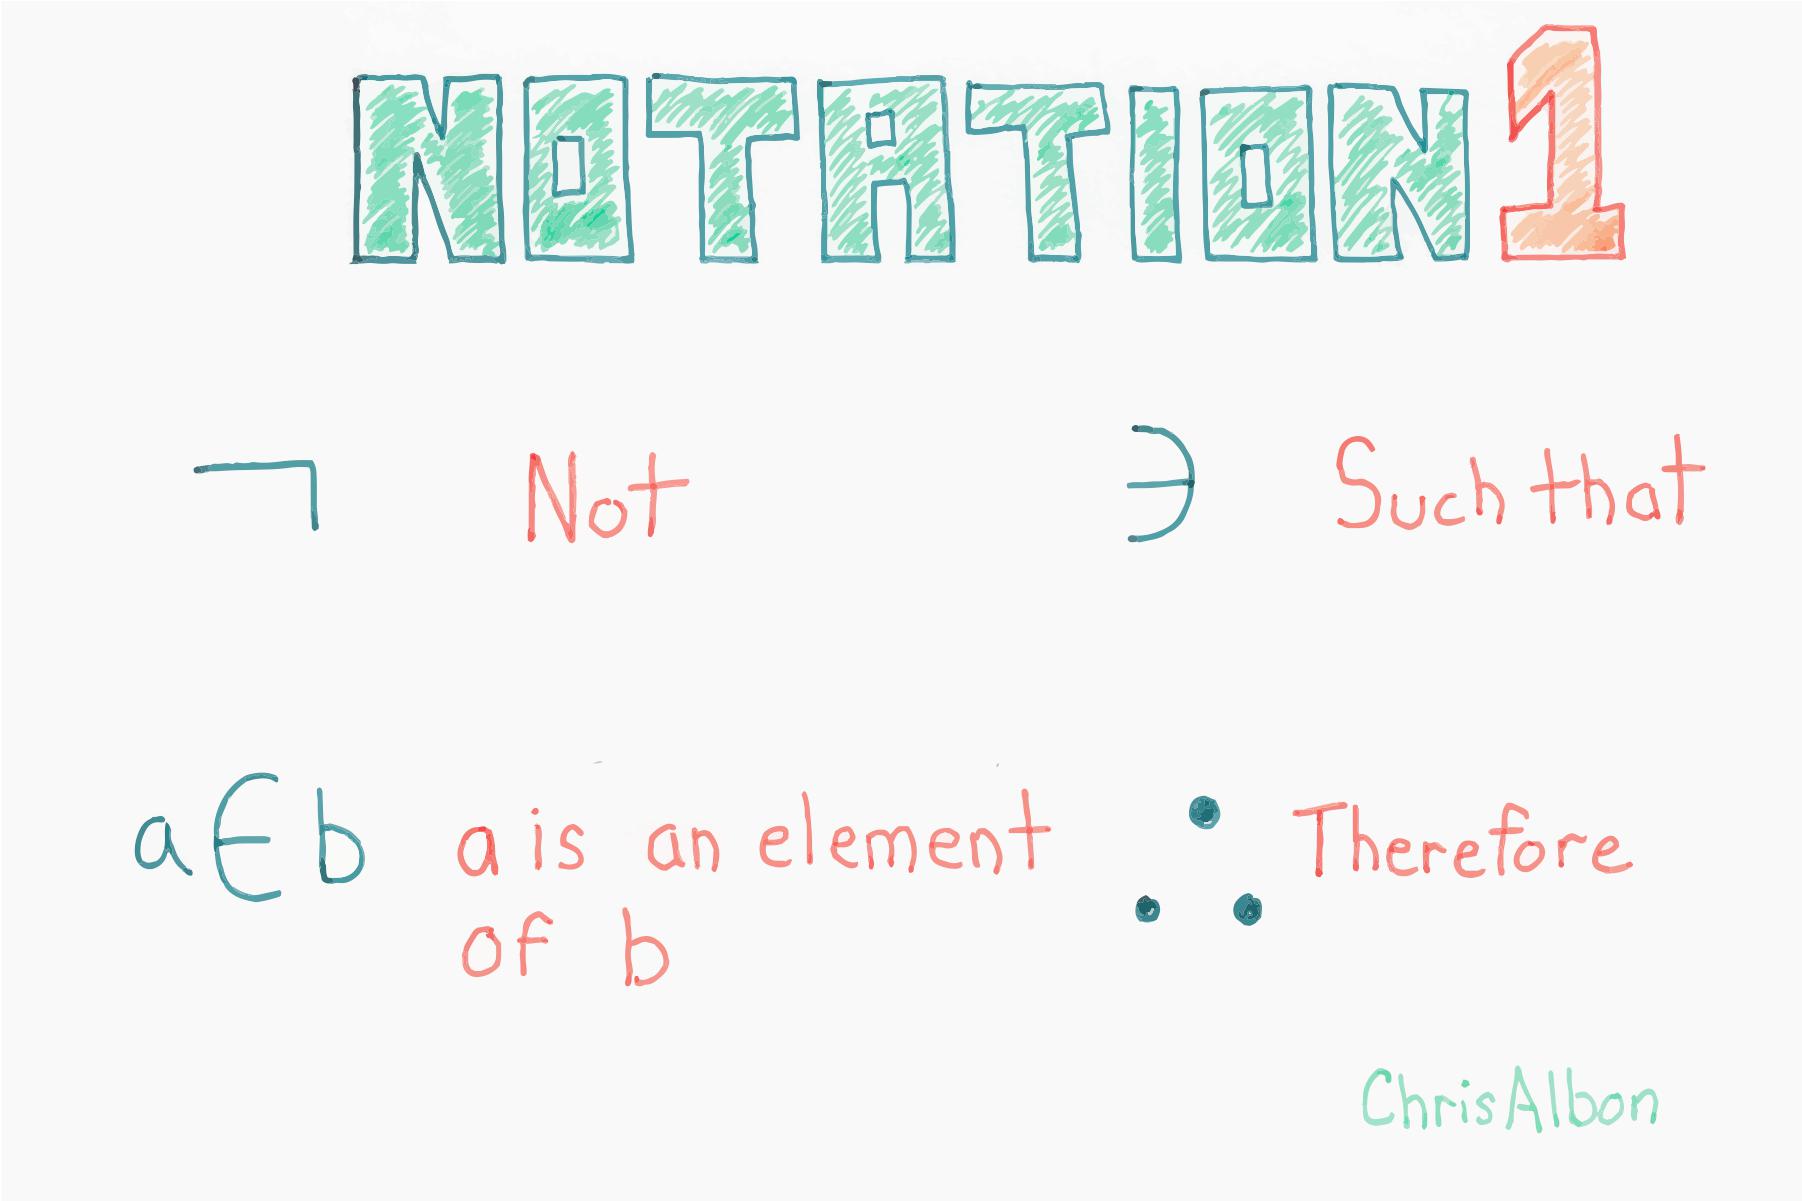 NOTATION 1
¬ Not
∋ Such that
a ∈ b a is an element
of b
∴ Therefore
Chris Albon